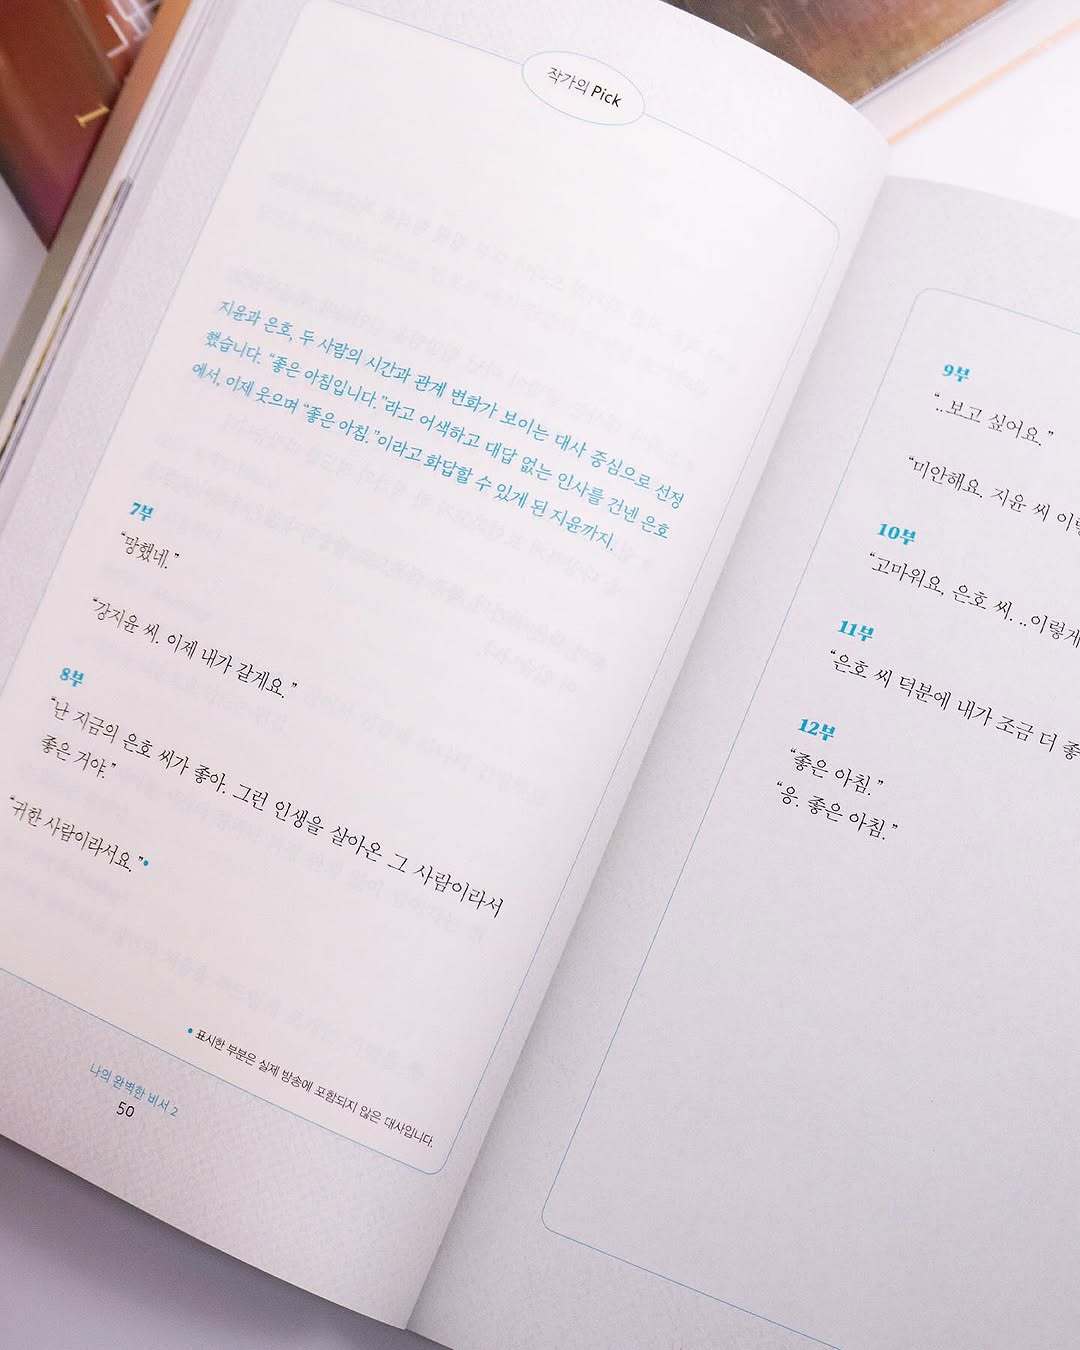 작가의 Pick
지윤과 은호, 두 사람의 시간과 관계 변화가 보이는 대사 중심으로 선정
했습니다. “좋은 아침입니다.”라고 어색하고 대답 없는 인사를 건넨 은호
에서, 이제 웃으며 “좋은 아침.”이라고 화답할 수 있게 된 지윤까지.
7부
“망했네.”
“강지윤 씨. 이제 내가 갈게요.”
8부
“난 지금의 은호 씨가 좋아. 그런 인생을 살아온 그 사람이라서
좋은 거야.”
“귀한 사람이라서요.”•
• 표시한 부분은 실제 방송에 포함되지 않은 대사입니다.
나의 완벽한 비서 2
50
9부
“..보고 싶어요.”
“미안해요. 지윤 씨
10부
“고마워요, 은호 씨. ..이렇게
11부
“은호 씨 덕분에 내가 조금 더
12부
“좋은 아침.”
“응. 좋은 아침.”